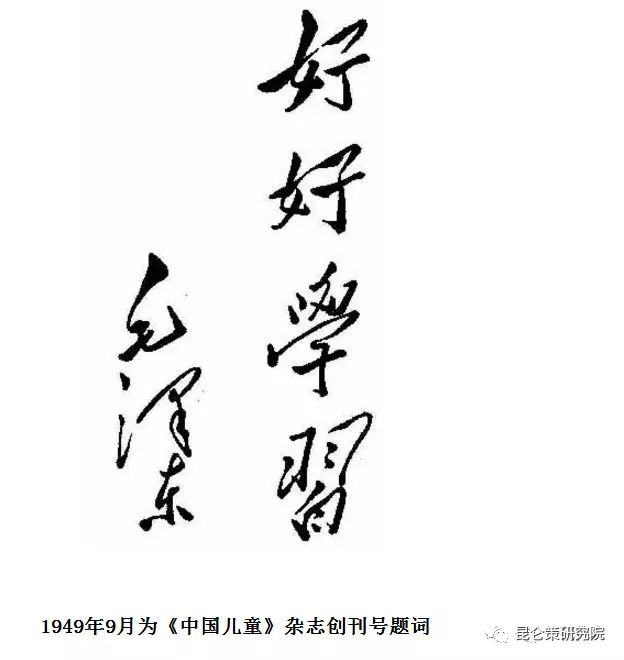 好好學習
毛泽东
1949年9月为《中国儿童》杂志创刊号题词
昆仑策研究院